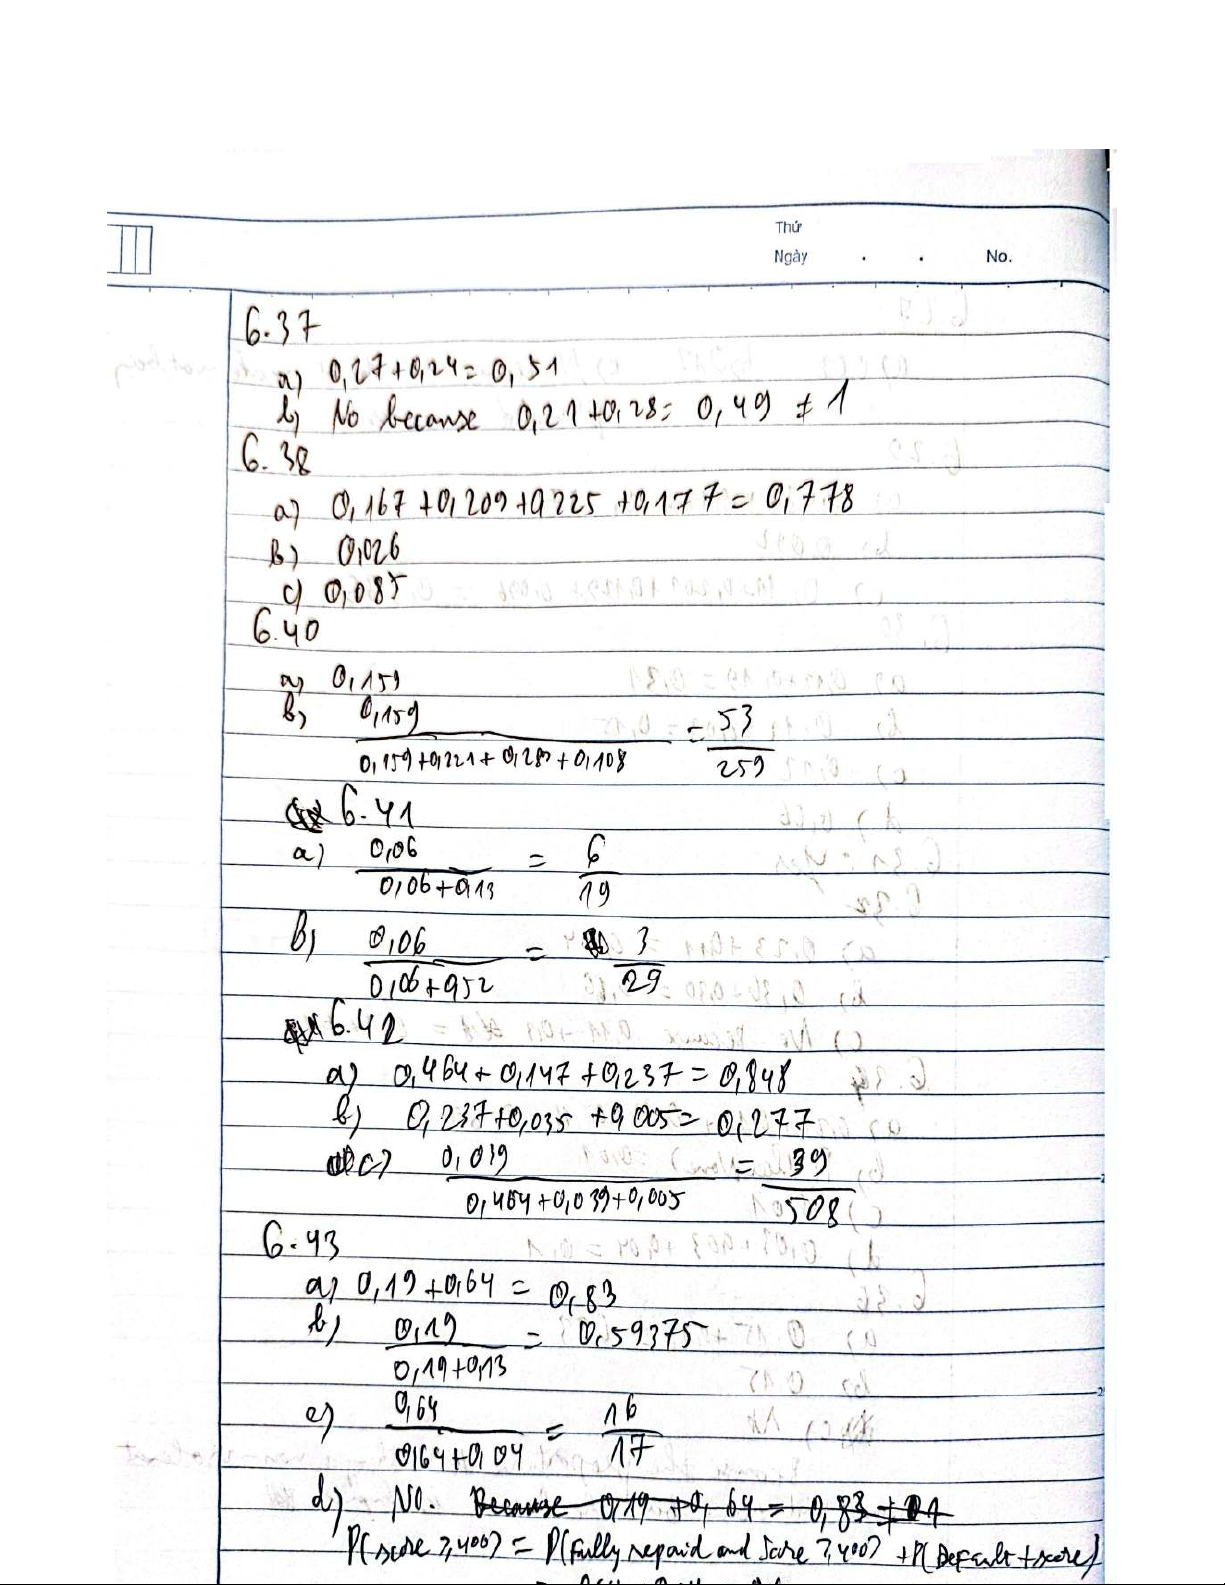 Thứ
Ngày . . No.
6.37
a) 0,27+0,24= 0,51
b) No because 0,21+0,28= 0,49 ≠ 1
6.38
a) 0,167+0,209+0,225+0,177=0,778
b) 0,026
c) 0,085
6.40
a) 0,159
b) 0,159 / 0,159+0,221+0,280+0,108 = 53/259
6.41
a) 0,06 / 0,06+0,13 = 6/19
b) 0,06 / 0,06+0,52 = 3/29
6.42
a) 0,464+0,147+0,237=0,848
b) 0,237+0,035+0,005= 0,277
c) 0,039 / 0,464+0,039+0,005 = 39/508
6.43
a) 0,19+0,64 = 0,83
b) 0,19 / 0,19+0,13 = 0,59375
c) 0,64 / 0,64+0,04 = 16/17
d) No. Because 0,19 +0,64 = 0,83 ≠ 1
P(score ≥400) = P(Fully repaid and Score ≥400) +P(Default+score)